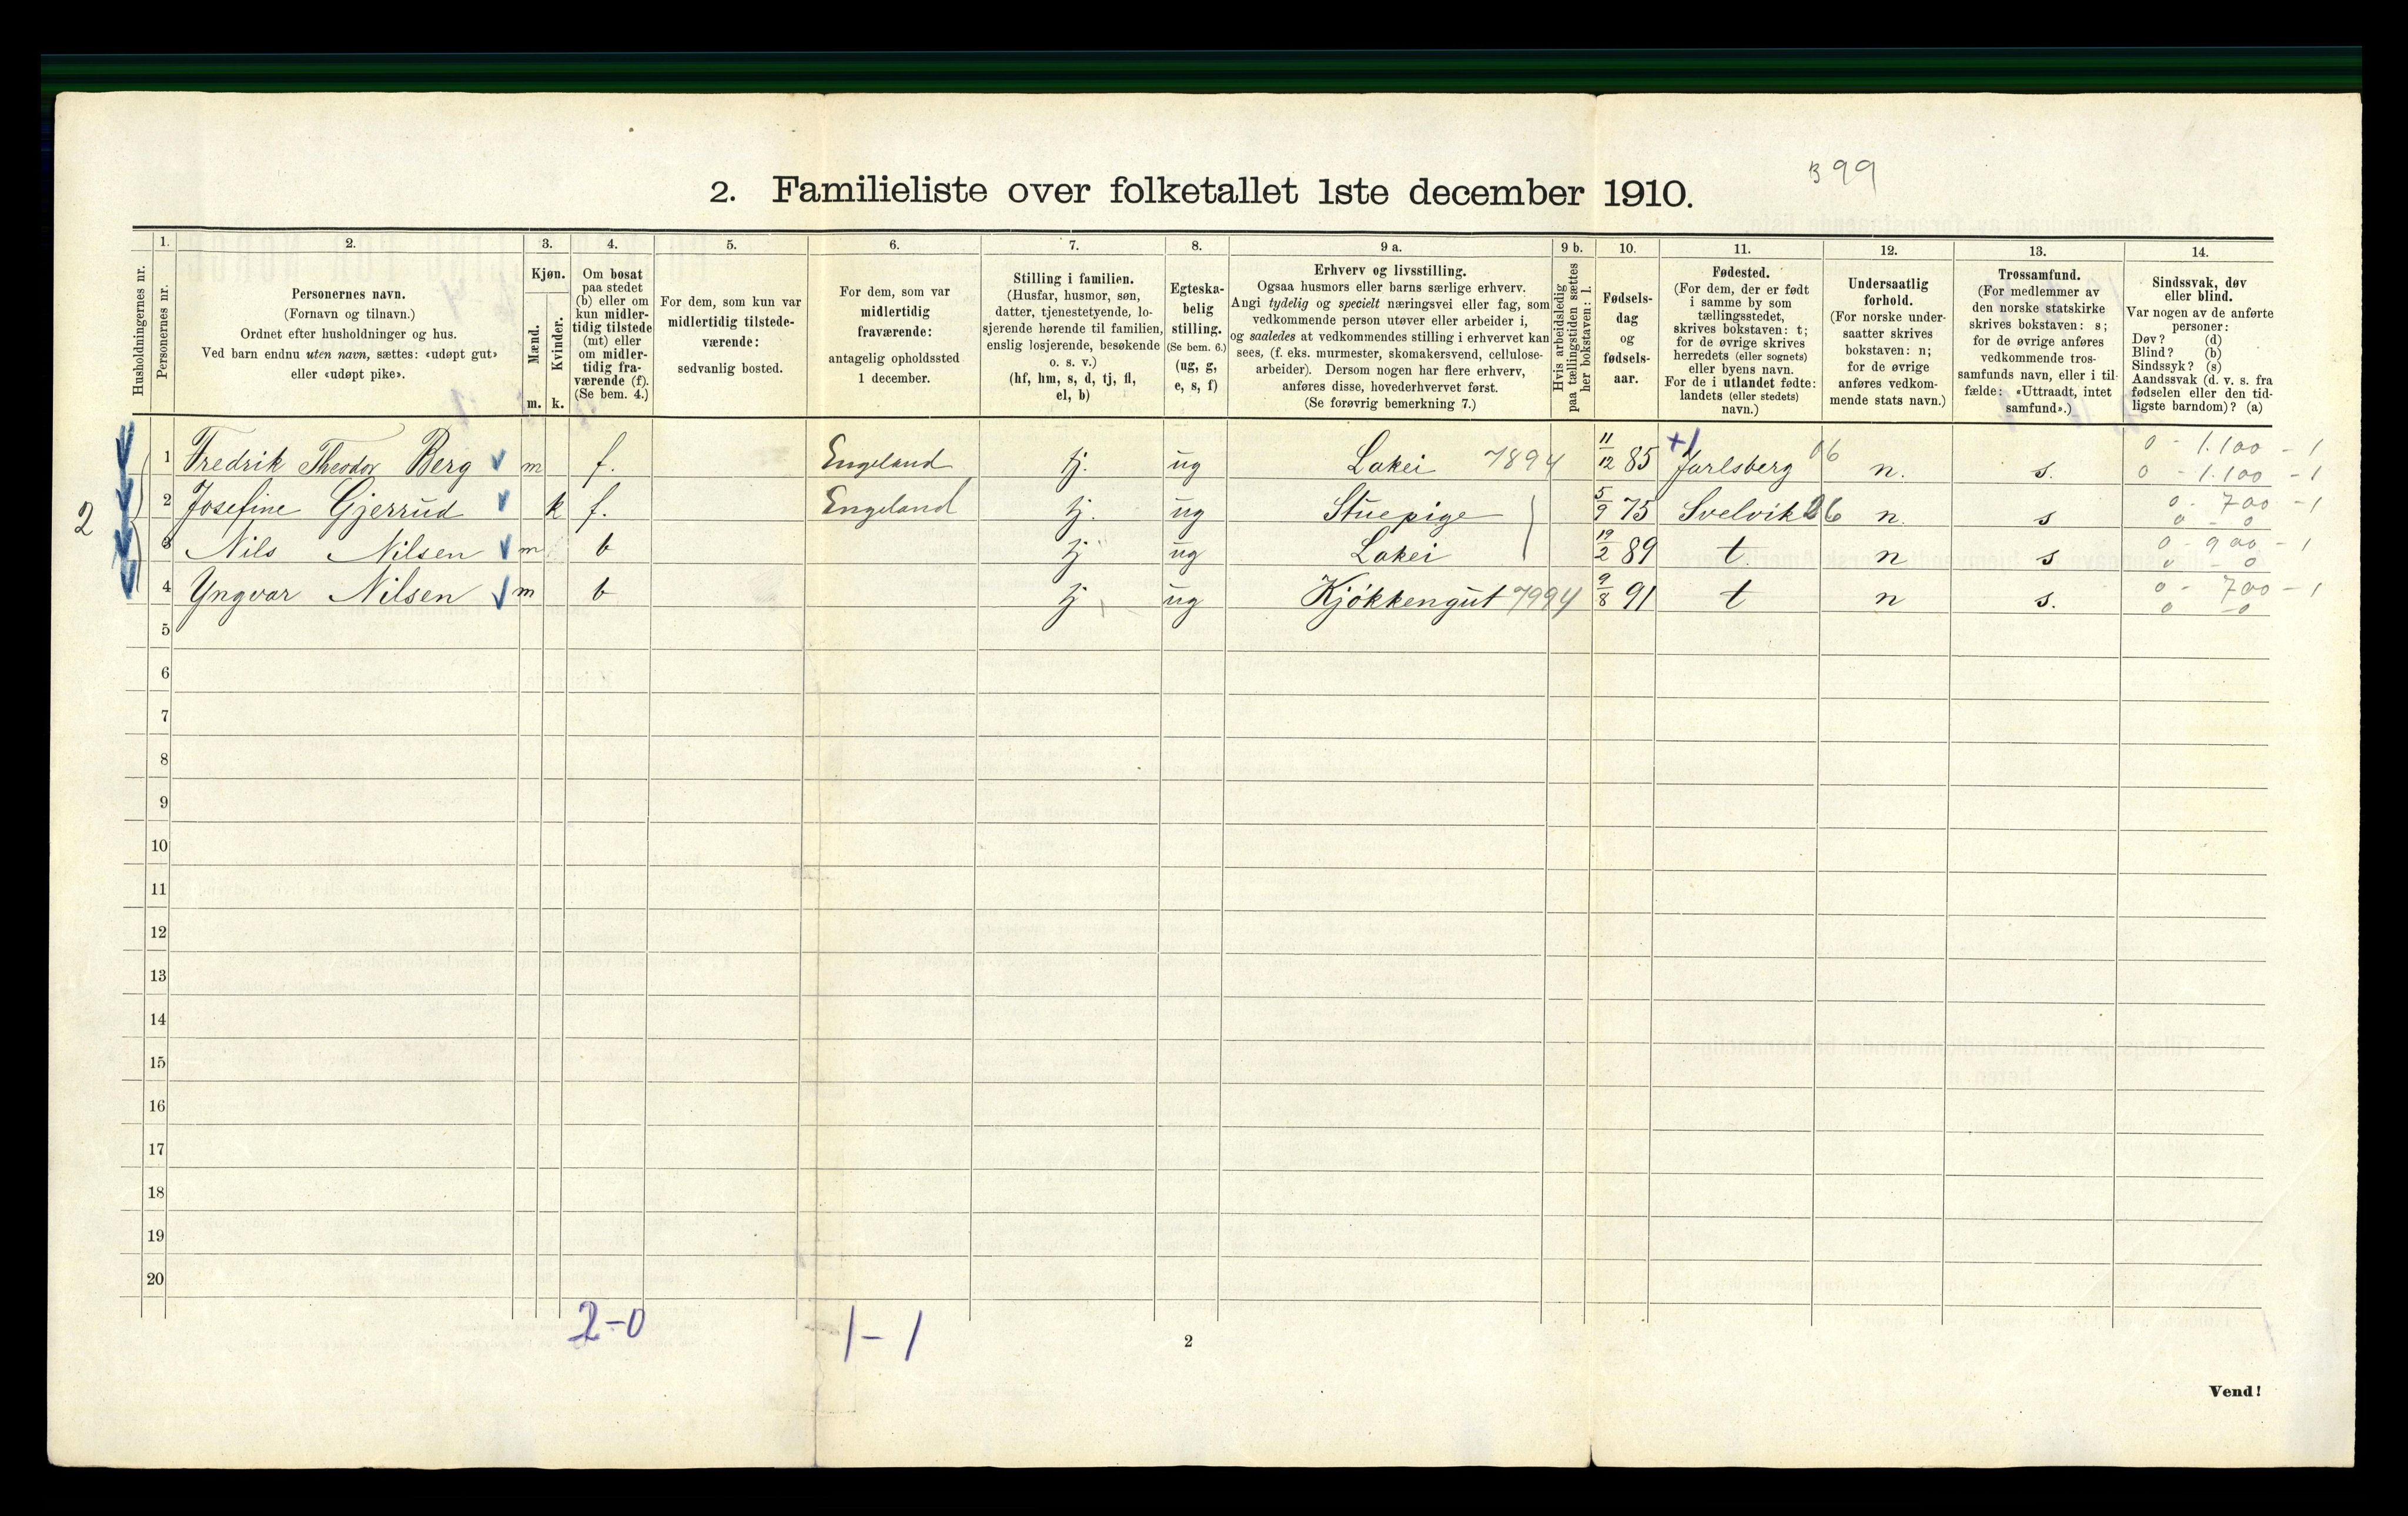 B 99
2. Familieliste over folketallet 1ste december 1910.
Husholdningernes nr.
1.
Personernes nr.
2.
Personernes navn.
(Fornavn og tilnavn.)
Ordnet efter husholdninger og hus.
Ved barn endnu uten navn, sættes: «udøpt gut»
eller «udøpt pike».
3.
Kjøn.
Mænd.
Kvinder.
m. k.
4.
Om bosat
paa stedet
(b) eller om
kun midler-
tidig tilstede
(mt) eller
om midler-
tidig fra-
værende (f).
(Se bem. 4.)
5.
For dem, som kun var
midlertidig tilstede-
værende:
sedvanlig bosted.
6.
For dem, som var
midlertidig
fraværende:
antagelig opholdssted
1 december.
7.
Stilling i familien.
(Husfar, husmor, søn,
datter, tjenestetyende, lo-
sjerende hørende til familien,
enslig losjerende, besøkende
o. s. v.)
(hf, hm, s, d, tj, fl,
el, b)
8.
Egteska-
belig
stilling.
(Se bem. 6.)
(ug, g,
e, s, f)
9 a.
Erhverv og livsstilling.
Ogsaa husmors eller barns særlige erhverv.
Angi tydelig og specielt næringsvei eller fag, som
vedkommende person utøver eller arbeider i,
og saaledes at vedkommendes stilling i erhvervet kan
sees, (f. eks. murmester, skomakersvend, cellulose-
arbeider). Dersom nogen har flere erhverv,
anføres disse, hovederhvervet først.
(Se forøvrig bemerkning 7.)
9 b.
Hvis arbeidsledig
paa tællingstiden sættes
her bokstaven: l.
10.
Fødsels-
dag
og
fødsels-
aar.
11.
Fødested.
(For dem, der er født
i samme by som
tællingsstedet,
skrives bokstaven: t;
for de øvrige skrives
herredets (eller sognets)
eller byens navn.
For de i utlandet fødte:
landets (eller stedets)
navn.)
12.
Undersaatlig
forhold.
(For norske under-
saatter skrives
bokstaven: n;
for de øvrige
anføres vedkom-
mende stats navn.)
13.
Trossamfund.
(For medlemmer av
den norske statskirke
skrives bokstaven: s;
for de øvrige anføres
vedkommende tros-
samfunds navn, eller i til-
fælde: «Uttraadt, intet
samfund».)
14.
Sindssvak, døv
eller blind.
Var nogen av de anførte
personer:
Døv? (d)
Blind? (b)
Sindssyk? (s)
Aandssvak (d. v. s. fra
fødselen eller den tid-
ligste barndom)? (a)
1 Fredrik Theodor Berg m f. Engeland tj. ug Lakei 7894 11/12 85 +1 Jarlsberg 06 n. s. 0 - 1.100 - 1
0 - 1.100 - 1
2 Josefine Gjerrud k f. Engeland tj. ug Stuepige 5/9 75 Svelvik 06 n. s 0 - 700 - 1
0 - 0
2
3 Nils Nilsen m b tj ug Lakei 19/2 89 t. n s 0 - 900 - 1
0 - 0
4 Yngvar Nilsen m b tj ug Kjökkengut 7994 9/8 91 t n s. 0 - 700 - 1
0 - 0
5
6
7
8
9
10
11
12
13
14
15
16
17
18
19
20
2-0 1-1
2
Vend!